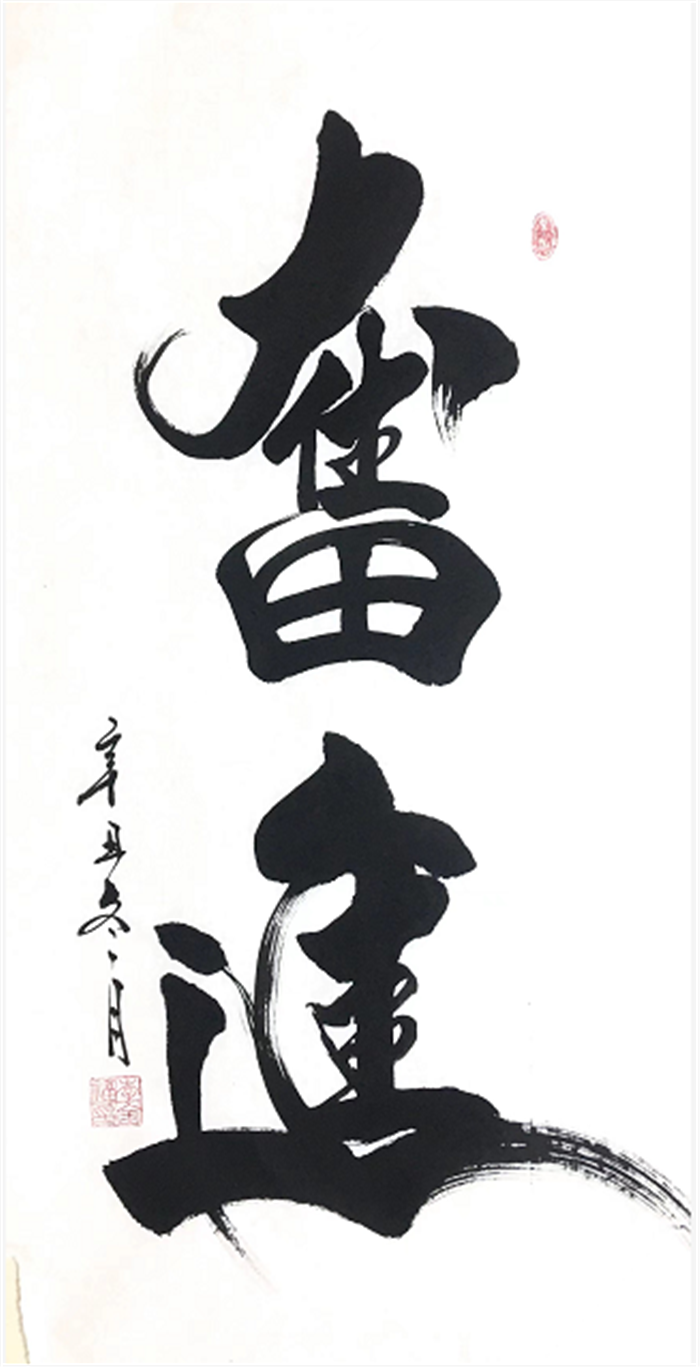 奮進
辛丑冬月